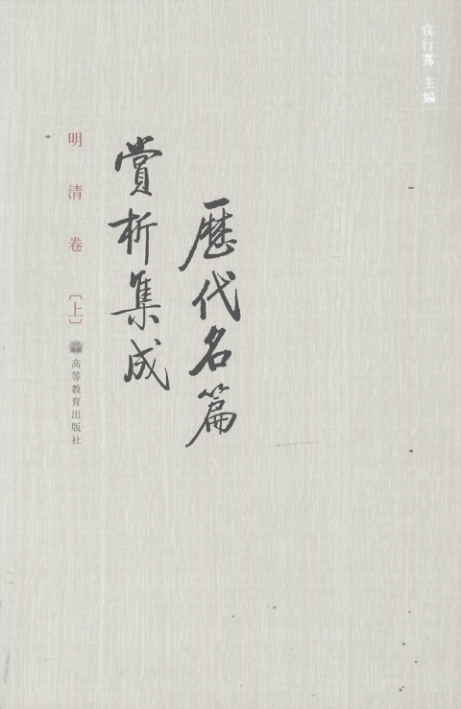 袁行霈 主编
歷代名篇
赏析集成
明清卷〔上〕
高等教育出版社